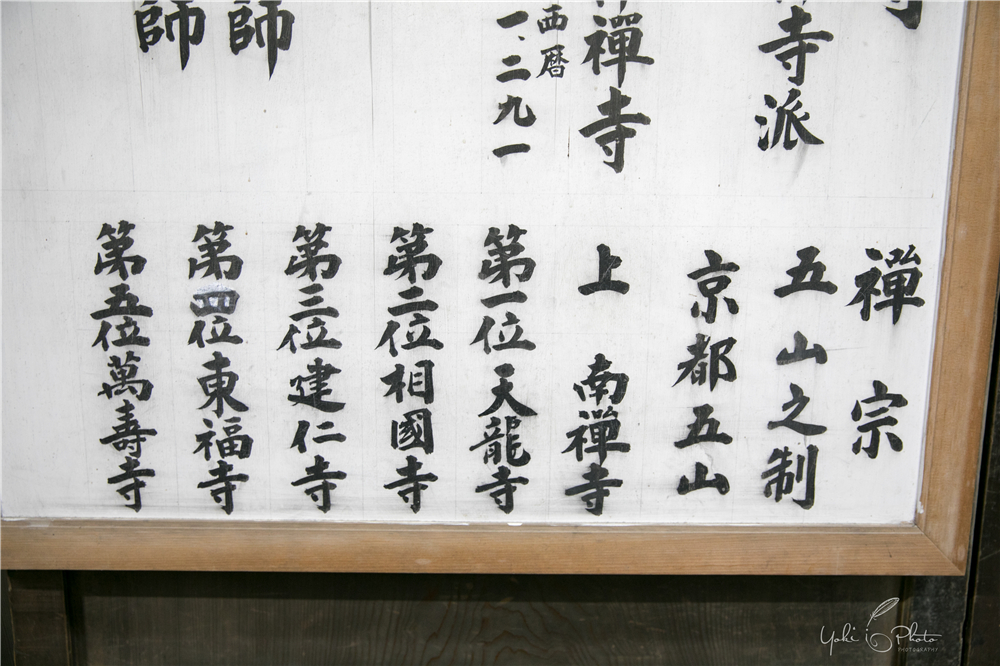 寺派
禪寺
西暦
一、二九一
師
師
禪宗
五山之制
京都五山
上 南禪寺
第一位天龍寺
第二位相國寺
第三位建仁寺
第四位東福寺
第五位萬壽寺
Yoki Photo
PHOTOGRAPHY